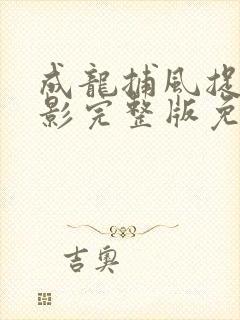 成龍捕風捉
影完整版免
吉奧